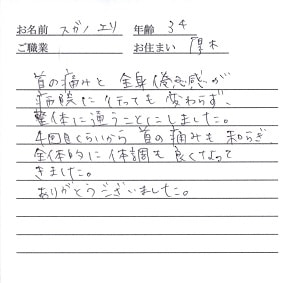 お名前 スガノ エリ 年齢 34
ご職業 お住まい 厚木
首の痛みと全身倦怠感が
病院に行っても変わらず、
整体に通うことにしました。
4回目くらいから首の痛みも和らぎ、
全体的に体調も良くなって
きました。
ありがとうございました。